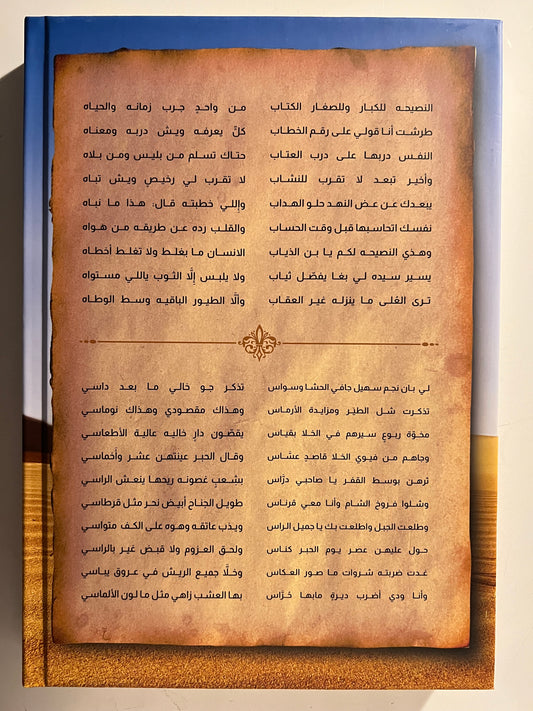 النصيحه للكبار وللصغار الكتاب من واحدٍ جرب زمانه والحياه
طرشت أنا قولي على رقم الخطاب كلٌ يعرفه ويش دربه ومعناه
النفس دربها على درب العتاب حتاك تسلم من بليس ومن بلاه
وأخير تبعد لا تقرب للنشاب لا تقرب لي رخيصٍ ويش تباه
يبعدك عن عض النهد حلو الهداب وإللي خطبته قال: هذا ما نباه
نفسك اتحاسبها قبل وقت الحساب والقلب رده عن طريقه من هواه
وهذي النصيحه لكم يا بن الذياب الانسان ما يغلط ولا تغلط أخطاه
يسير سيده لي بغا يفصّل ثياب ولا يلبس إلّا الثوب ياللي مستواه
ترى العُلى ما ينزله غير العقاب وألّا الطيور الباقيه وسط الوطاه
لي بان نجم سهيل جافي الحشا وسواس تذكر جو خالي ما بعد داسي
تذكرت شل الطيّر ومزايدة الأرماس وهذاك مقصودي وهذاك نوماسي
مخوّة ربوع سيرهم في الخلا بقياس بقصّون دارٍ خاليه عالية الأطعاسي
وجاهم من فيوي الخلا قاصدٍ عشاس وقال الحبر عينتهن عشر وأخماسي
ترهن بوسط القفر يا صاحبي درّاس بشعب غصونه ريحها ينعش الراسي
وشلوا فروخ الشام وأنا معي قرناس طويل الجناح أبيض نحر مثل قرطاسي
وطلعت الجبل واطلعت بك يا جميل الراس ويذب عاتقه وهوه على الكف متواسي
حول عليهن عصر يوم الحبر كناس ولحق العزوم ولا قبض غير بالراسي
غدت ضربته شروات ما صور العكاس وخلّا جميع الريش في عروق يباسي
وأنا ودي أضرب ديرةٍ مابها حُرّاس بها العشب زاهي مثل ما لون الألماسي